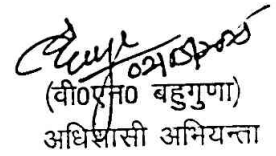 (वी०एन० बहुगुणा)
अधिशासी अभियन्ता